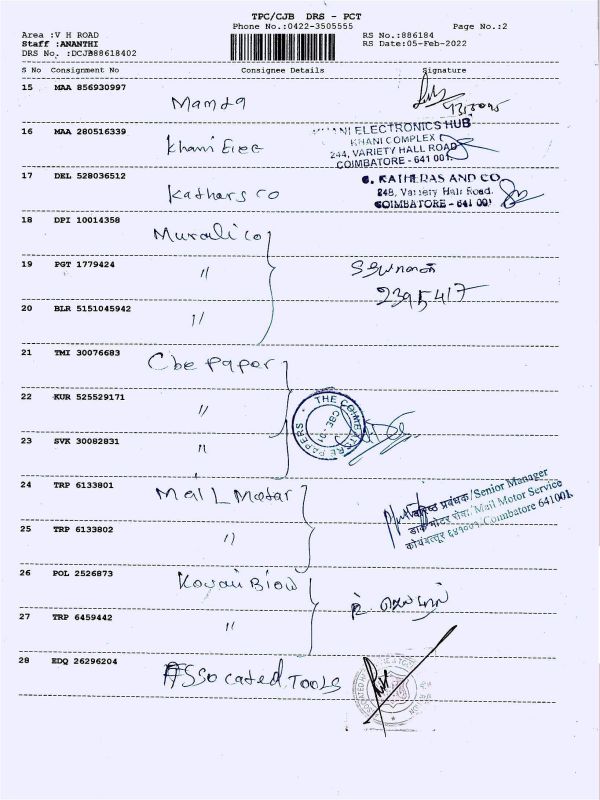 TPC/CJB DRS - PCT
Phone No.:0422-3505555 Page No.:2
Area :V H ROAD RS No.:886184
Staff :ANANTHI RS Date:05-Feb-2022
DRS No. :DCJB88618402
S No Consignment No Consignee Details Signature
15 MAA 856930997
Mamta
16 MAA 280516339
Khani Elec
KHANI ELECTRONICS HUB
KHANI COMPLEX
244, VARIETY HALL ROAD
COIMBATORE - 641 001.
17 DEL 528036512
Kathars co
C. KATHERAS AND CO
248, Variety Hall Road.
COIMBATORE - 641 001
18 DPI 10014358
Murali co
19 PGT 1779424
"
2395417
20 BLR 5151045942
"
21 TMI 30076683
Cbe paper
22 KUR 525529171
"
THE COIMBATORE PAPERS
CBE - 01
23 SVK 30082831
"
24 TRP 6133801
Mail Motar
वरिष्ठ प्रबंधक/Senior Manager
डाक मोटर सेवा/Mail Motor Service
कोयंबत्तूर ६४१००१/Coimbatore 641001.
25 TRP 6133802
"
26 POL 2526873
Kovai
27 TRP 6459442
"
28 EDQ 26296204
Assocated Tools